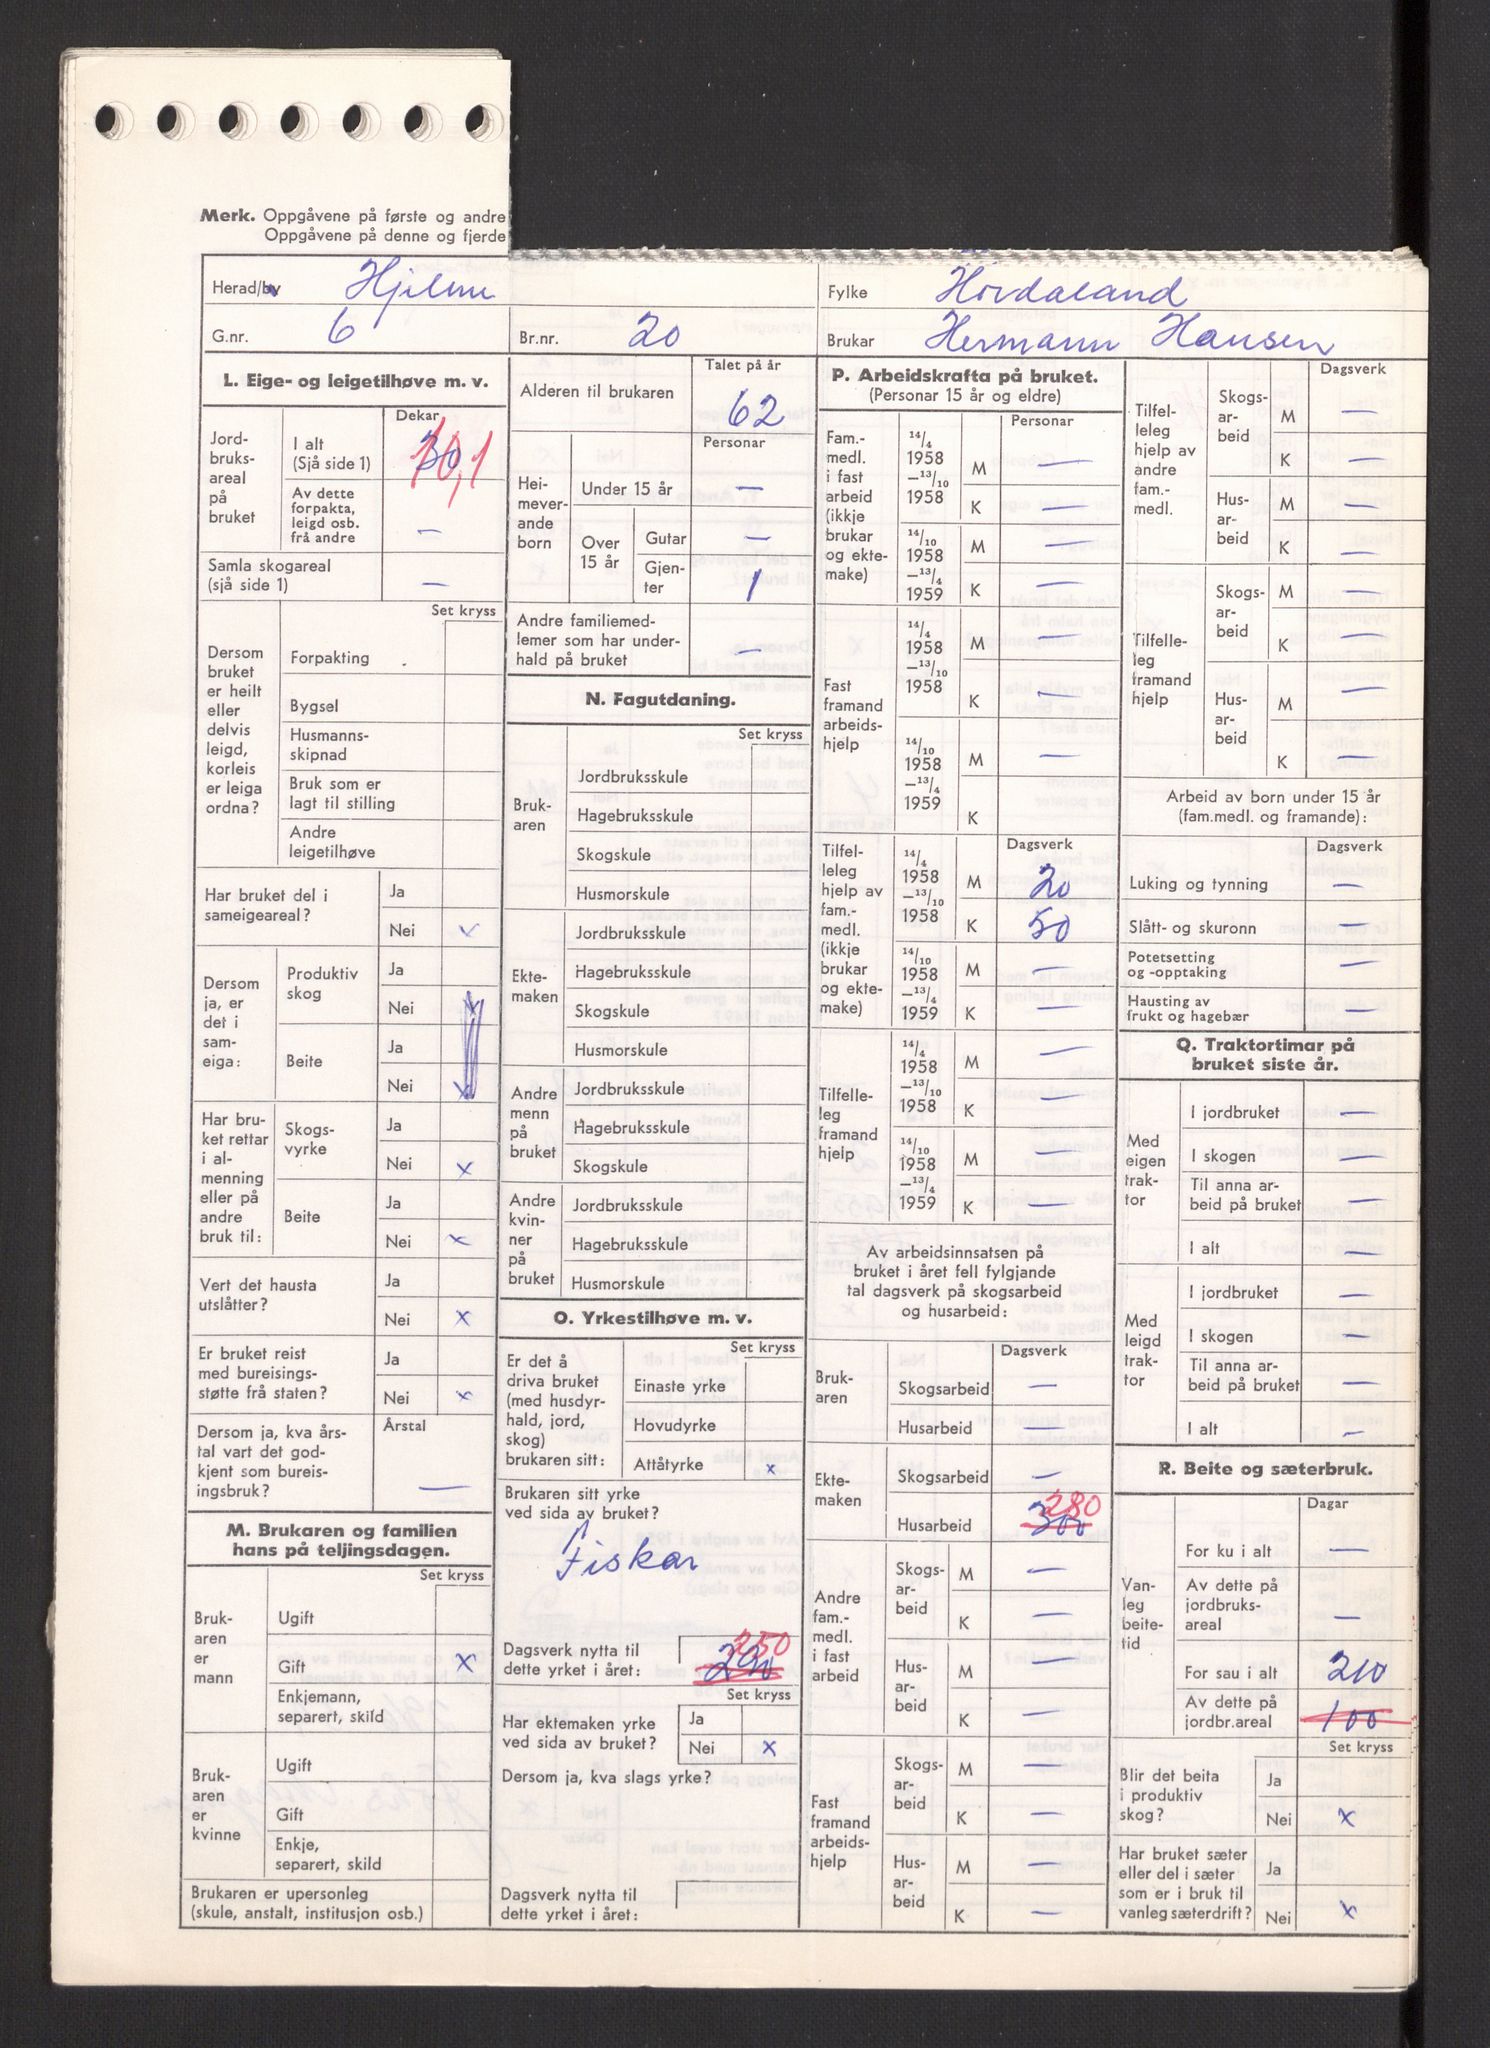 Merk. Oppgåvene på første og andre
Oppgåvene på denne og fjerde
Herad/by Hjelme
Fylke Hordaland
G.nr. 6
Br.nr. 20
Brukar Hermann Hansen
L. Eige- og leigetilhøve m. v.
Dekar
Jord-
bruks-
areal
på
bruket
I alt
(Sjå side 1)
10,1
Av dette
forpakta,
leigd osb.
frå andre —
Samla skogareal
(sjå side 1) —
Set kryss
Dersom
bruket
er heilt
eller
delvis
leigd,
korleis
er leiga
ordna?
Forpakting
Bygsel
Husmanns-
skipnad
Bruk som er
lagt til stilling
Andre
leigetilhøve
Har bruket del i
sameigeareal?
Ja
Nei x
Dersom
ja, er
det i
sam-
eiga:
Produktiv
skog
Ja
Nei x
Beite
Ja
Nei x
Har bru-
ket rettar
i al-
menning
eller på
andre
bruk til:
Skogs-
vyrke
Ja
Nei x
Beite
Ja
Nei x
Vert det hausta
utslåtter?
Ja
Nei x
Er bruket reist
med bureisings-
støtte frå staten?
Ja
Nei x
Dersom ja, kva års-
tal vart det god-
kjent som bureis-
ingsbruk?
Årstal
—
M. Brukaren og familien
hans på teljingsdagen.
Set kryss
Bruk-
aren
er
mann
Ugift
Gift x
Enkjemann,
separert, skild
Bruk-
aren
er
kvinne
Ugift
Gift
Enkje,
separert, skild
Brukaren er upersonleg
(skule, anstalt, institusjon osb.)
Talet på år
Alderen til brukaren 62
Personar
Hei-
mever-
ande
born
Under 15 år —
Over
15 år
Gutar —
Gjen-
ter 1
Andre familiemed-
lemer som har under-
hald på bruket —
N. Fagutdaning.
Set kryss
Bruk-
aren
Jordbruksskule
Hagebruksskule
Skogskule
Husmorskule
Ekte-
maken
Jordbruksskule
Hagebruksskule
Skogskule
Husmorskule
Andre
menn
på
bruket
Jordbruksskule
Hagebruksskule
Skogskule
Andre
kvin-
ner
på
bruket
Jordbruksskule
Hagebruksskule
Husmorskule
O. Yrkestilhøve m. v.
Set kryss
Er det å
driva bruket
(med husdyr-
hald, jord,
skog)
brukaren sitt:
Einaste yrke
Hovudyrke
Attåtyrke x
Brukaren sitt yrke
ved sida av bruket?
Fiskar
Dagsverk nytta til
dette yrket i året:
250
Set kryss
Har ektemaken yrke
ved sida av bruket?
Ja
Nei x
Dersom ja, kva slags yrke?
Dagsverk nytta til
dette yrket i året:
P. Arbeidskrafta på bruket.
(Personar 15 år og eldre)
Personar
Fam.-
medl.
i fast
arbeid
(ikkje
brukar
og ekte-
make)
14/4
1958
—13/10
1958
M —
K —
14/10
1958
—13/4
1959
M —
K —
Fast
framand
arbeids-
hjelp
14/4
1958
—13/10
1958
M —
K —
14/10
1958
—13/4
1959
M —
K
Dagsverk
Tilfel-
leleg
hjelp av
fam.-
medl.
(ikkje
brukar
og ekte-
make)
14/4
1958
—13/10
1958
M 20
K 50
14/10
1958
—13/4
1959
M —
K —
Tilfelle-
leg
framand
hjelp
14/4
1958
—13/10
1958
M —
K —
14/10
1958
—13/4
1959
M —
K —
Av arbeidsinnsatsen på
bruket i året fell fylgjande
tal dagsverk på skogsarbeid
og husarbeid:
Dagsverk
Bruk-
aren
Skogsarbeid —
Husarbeid —
Ekte-
maken
Skogsarbeid —
Husarbeid 300 280
Andre
fam.-
medl.
i fast
arbeid
Skogs-
ar-
beid
M —
K —
Hus-
ar-
beid
M —
K —
Fast
framand
arbeids-
hjelp
Skogs-
ar-
beid
M —
K —
Hus-
ar-
beid
M —
K —
Dagsverk
Tilfel-
leleg
hjelp av
andre
fam.-
medl.
Skogs-
ar-
beid
M —
K —
Hus-
ar-
beid
M —
K —
Tilfelle-
leg
framand
hjelp
Skogs-
ar-
beid
M —
K —
Hus-
ar-
beid
M —
K —
Arbeid av born under 15 år
(fam.medl. og framande):
Dagsverk
Luking og tynning —
Slått- og skuronn —
Potetsetting
og -opptaking —
Hausting av
frukt og hagebær —
Q. Traktortimar på
bruket siste år.
Med
eigen
trak-
tor
I jordbruket —
I skogen —
Til anna ar-
beid på bruket —
I alt —
Med
leigd
trak-
tor
I jordbruket —
I skogen —
Til anna ar-
beid på bruket —
I alt —
R. Beite og sæterbruk.
Dagar
Van-
leg
beite-
tid
For ku i alt —
Av dette på
jordbruks-
areal —
For sau i alt 210
Av dette på
jordbr.areal 100
Set kryss
Blir det beita
i produktiv
skog?
Ja
Nei x
Har bruket sæter
eller del i sæter
som er i bruk til
vanleg sæterdrift?
Ja
Nei x